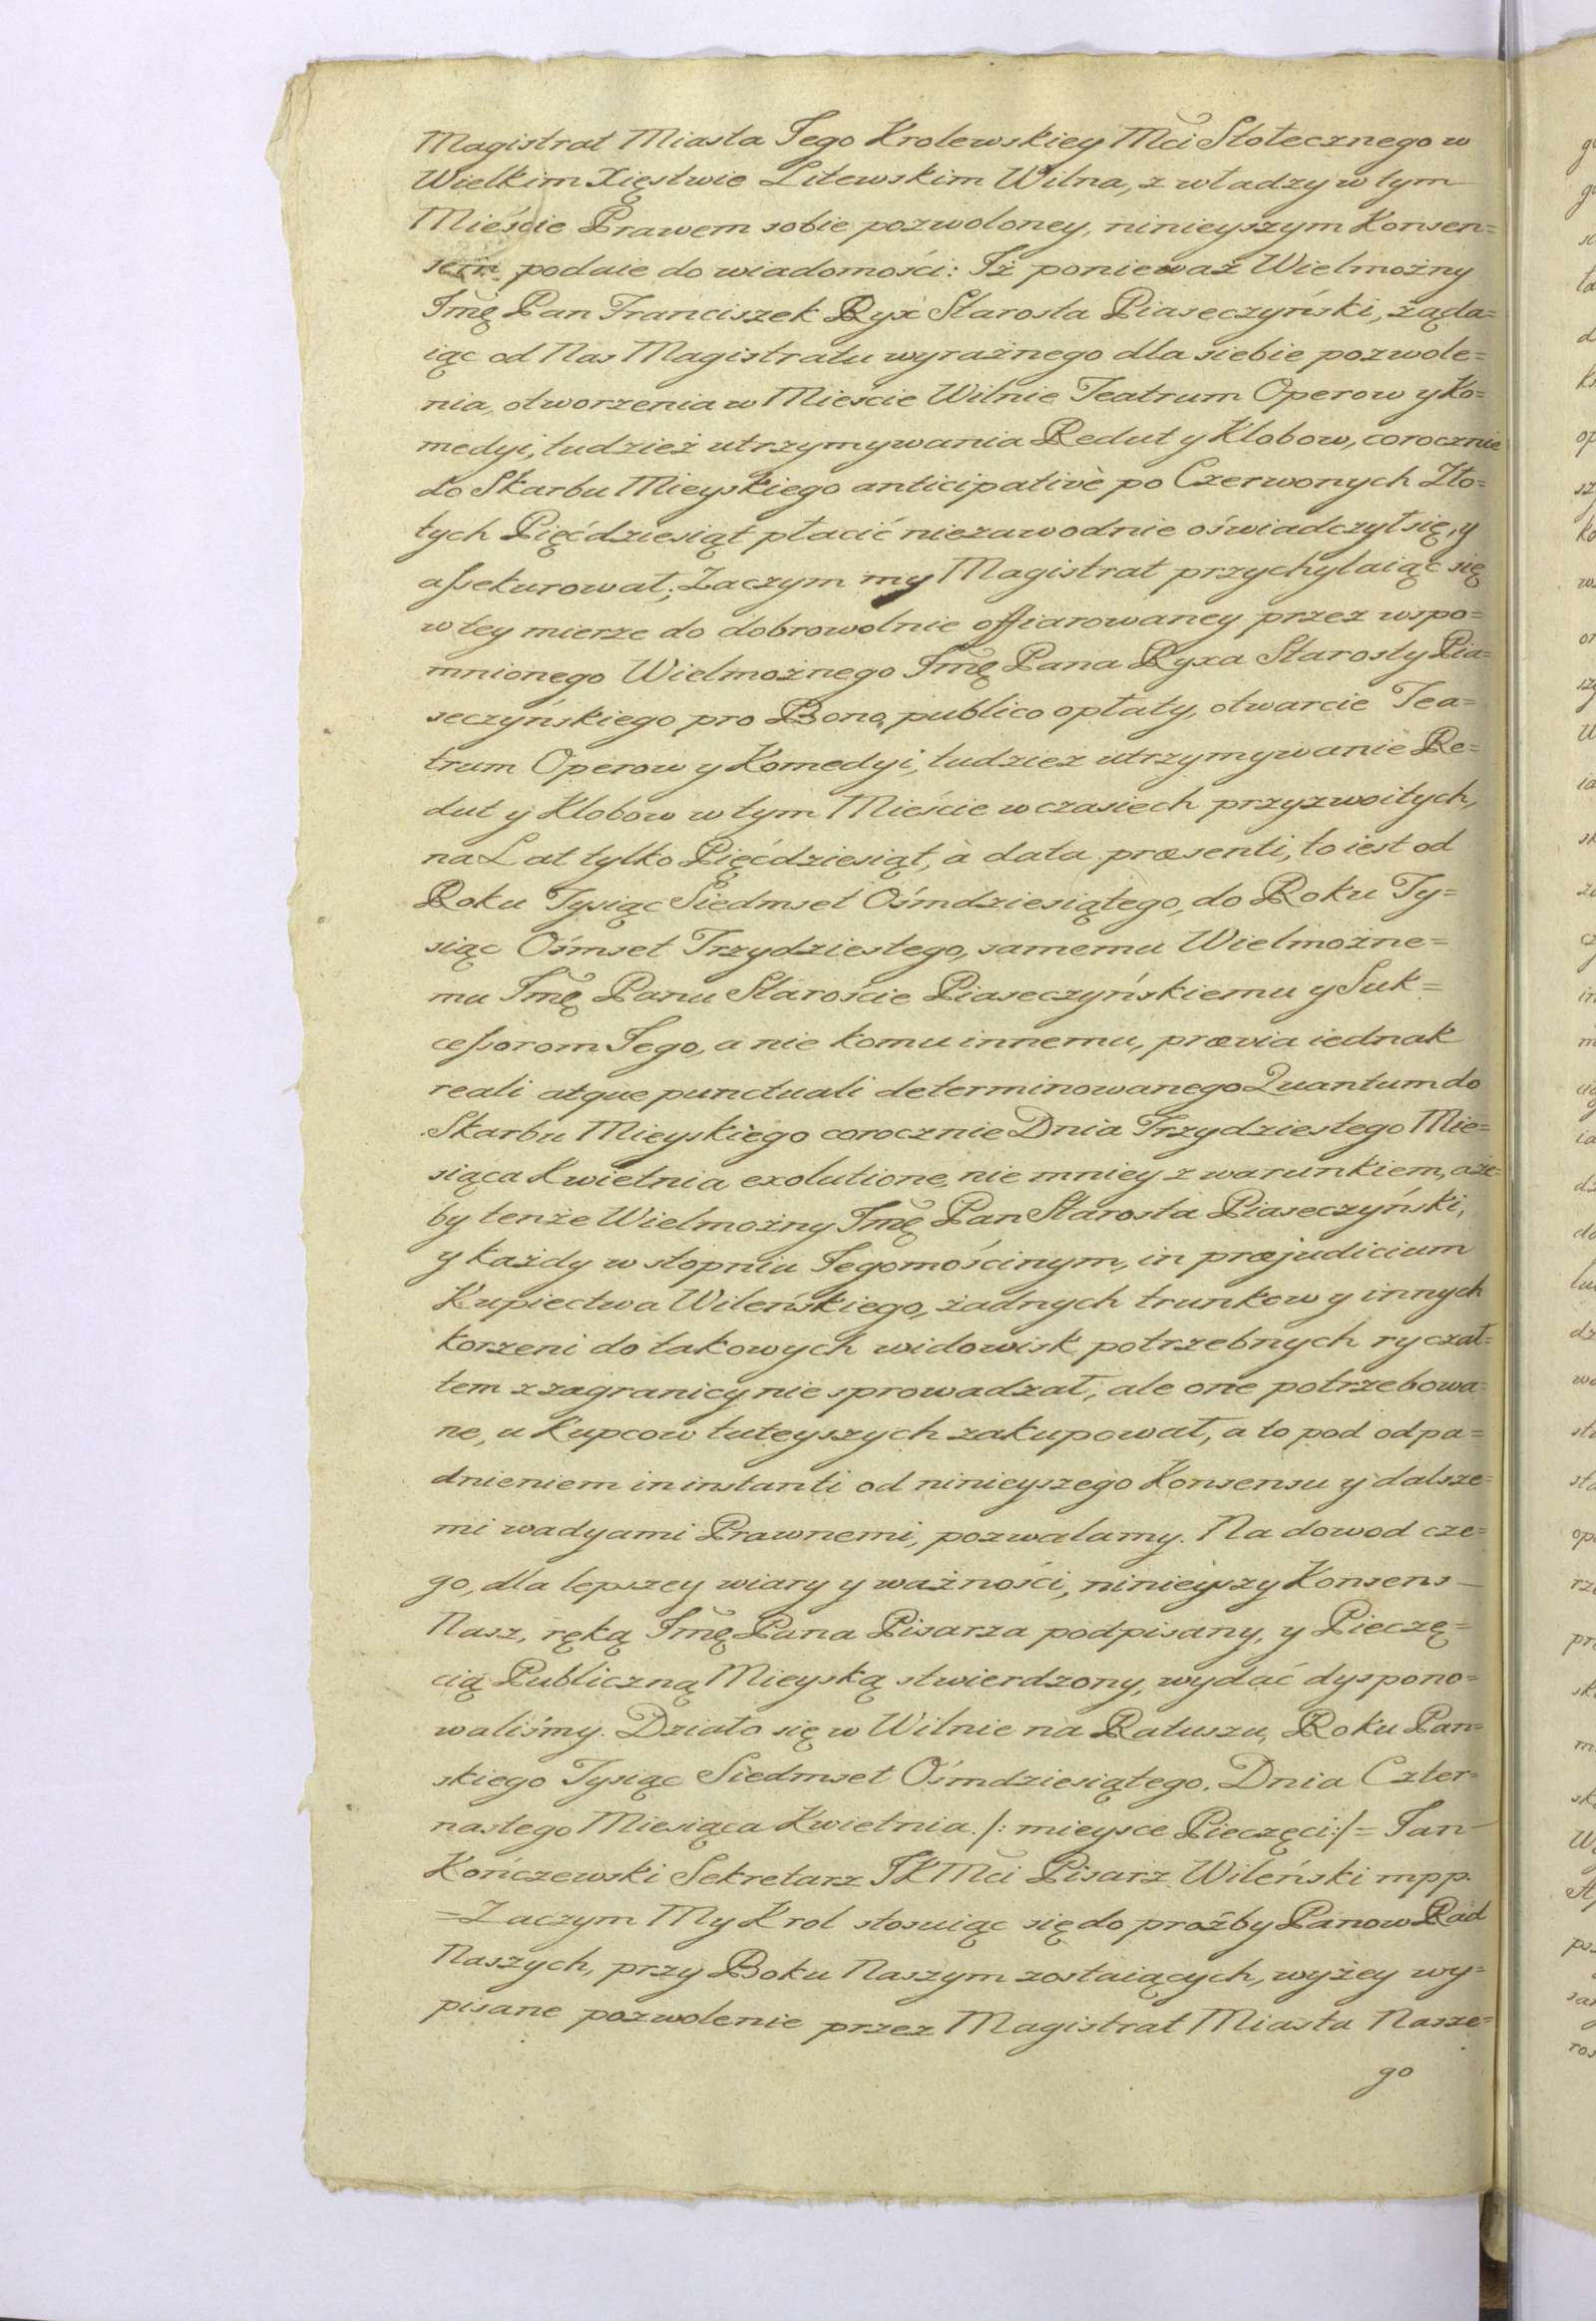 Magistrat Miasta Jego Krolewskiey Mci Stołecznego w
Wielkim Xięstwie Litewskim Wilna, z władzy w tym
Mieście Prawem sobie pozwoloney, ninieyszym Konsen=
sem podaie do wiadomości: Iż ponieważ Wielmożny
Jmę Pan Franciszek Ryx Starosta Piaseczyński, żąda=
iąc od Nas Magistratu wyraźnego dla siebie pozwole=
nia, otworzenia w Mieście Wilnie Teatrum Operow y Ko=
medyi, tudzież utrzymywania Redut y Klobow, corocznie
do Skarbu Mieyskiego anticipativè po Czerwonych Zło=
tych Pięćdziesiąt płacić niezawodnie oświadczył się, y
assekurował; Zaczym my Magistrat przychylaiąc się
w tey mierze do dobrowolnie offiarowaney przez wspo=
mnionego Wielmożnego Jmę Pana Ryxa Starosty Pia=
seczyńskiego pro Bono publico opłaty, otwarcie Tea=
trum Operow y Komedyi, tudzież utrzymywanie Re=
dut y Klobow w tym Mieście w czasiech przyzwoitych,
na Lat tylko Pięćdziesiąt, à data præsenti, to iest od
Roku Tysiąc Siedmset Ośmdziesiątego, do Roku Ty=
siąc Ośmset Trzydziestego, samemu Wielmożne=
mu Jmę Panu Staroście Piaseczyńskiemu y Suk=
cessorom Jego, a nie komu innemu, prævia iednak
reali atque punctuali determinowanego Quantum do
Skarbu Mieyskiego corocznie Dnia Trzydziestego Mie=
siąca Kwietnia exolutione, nie mniey z warunkiem, aże=
by tenże Wielmożny Jmę Pan Starosta Piaseczyński,
y każdy w stopniu Jegomościnym, in præjudicium
Kupiectwa Wileńskiego, żadnych trunkow y innych
korzeni do takowych widowisk potrzebnych ryczał=
tem z zagranicy nie sprowadzał, ale one potrzebowa=
ne, u Kupcow tuteyszych zakupował, a to pod odpa=
dnieniem in instanti od ninieyszego Konsensu y dalsze=
mi wadyami Prawnemi, pozwalamy. Na dowod cze=
go, dla lepszey wiary y ważności, ninieyszy Konsens
Nasz, ręką Jmę Pana Pisarza podpisany, y Pieczę=
cią Publiczną Mieyską stwierdzony, wydać dyspono=
waliśmy. Działo się w Wilnie na Ratuszu, Roku Pan=
skiego Tysiąc Siedmset Ośmdziesiątego, Dnia Czter=
nastego Miesiąca Kwietnia. /: mieysce Pieczęci :/ = Jan
Kończewski Sekretarz JKMci Pisarz Wileński mpp.
= Zaczym My Krol stosuiąc się do proźby Panow Rad
Naszych, przy Boku Naszym zostaiących, wyżey wy=
pisane pozwolenie przez Magistrat Miasta Nasze=
go